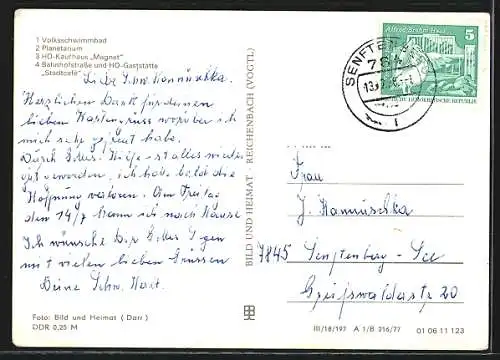 1 Volksschwimmbad
2 Planetarium
3 HO-Kaufhaus „Magnet"
4 Bahnhofstraße und HO-Gaststätte
„Stadtcafé"
Liebe Schw. Hannuschka.
Herzlichen Dank für deinen
lieben Kartengruss worüber ich
mich sehr gefreut habe.
Durch Gottes Hilfe ist alles wieder
gut geworden, ich habe bald die
Hoffnung verloren. Am Freitag
den 14/7 kann ich nach Hause
Ich wünsche Dir Gottes Segen
mit vielen lieben Grüssen
Deine Schw.
Foto: Bild und Heimat ( Darr )
DDR 0,25 M
BILD UND HEIMAT REICHENBACH (VOGTL)
SENFTENBERG
1
5
DEMOKRATISCHE REPUBLIK
Frau
J. Hannuschka
7845 Senftenberg - See
Greifswalderstr 20
III/18/197 A 1/B 216/77
01 06 11 123